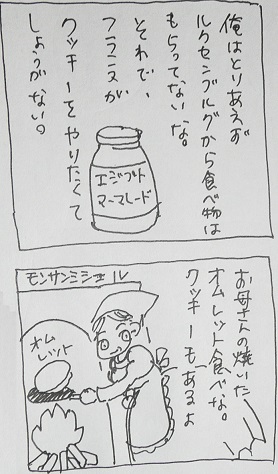 俺はとりあえず
ルクセンブルグから食べ物は
もらってないな。
それで、
フランスが
クッキーをやりたくて
しょうがない。
エジプト
マーマレード
お母さんの焼いた
オムレット食べな。
クッキーもあるよ
モンサンミシェル
オム
レット